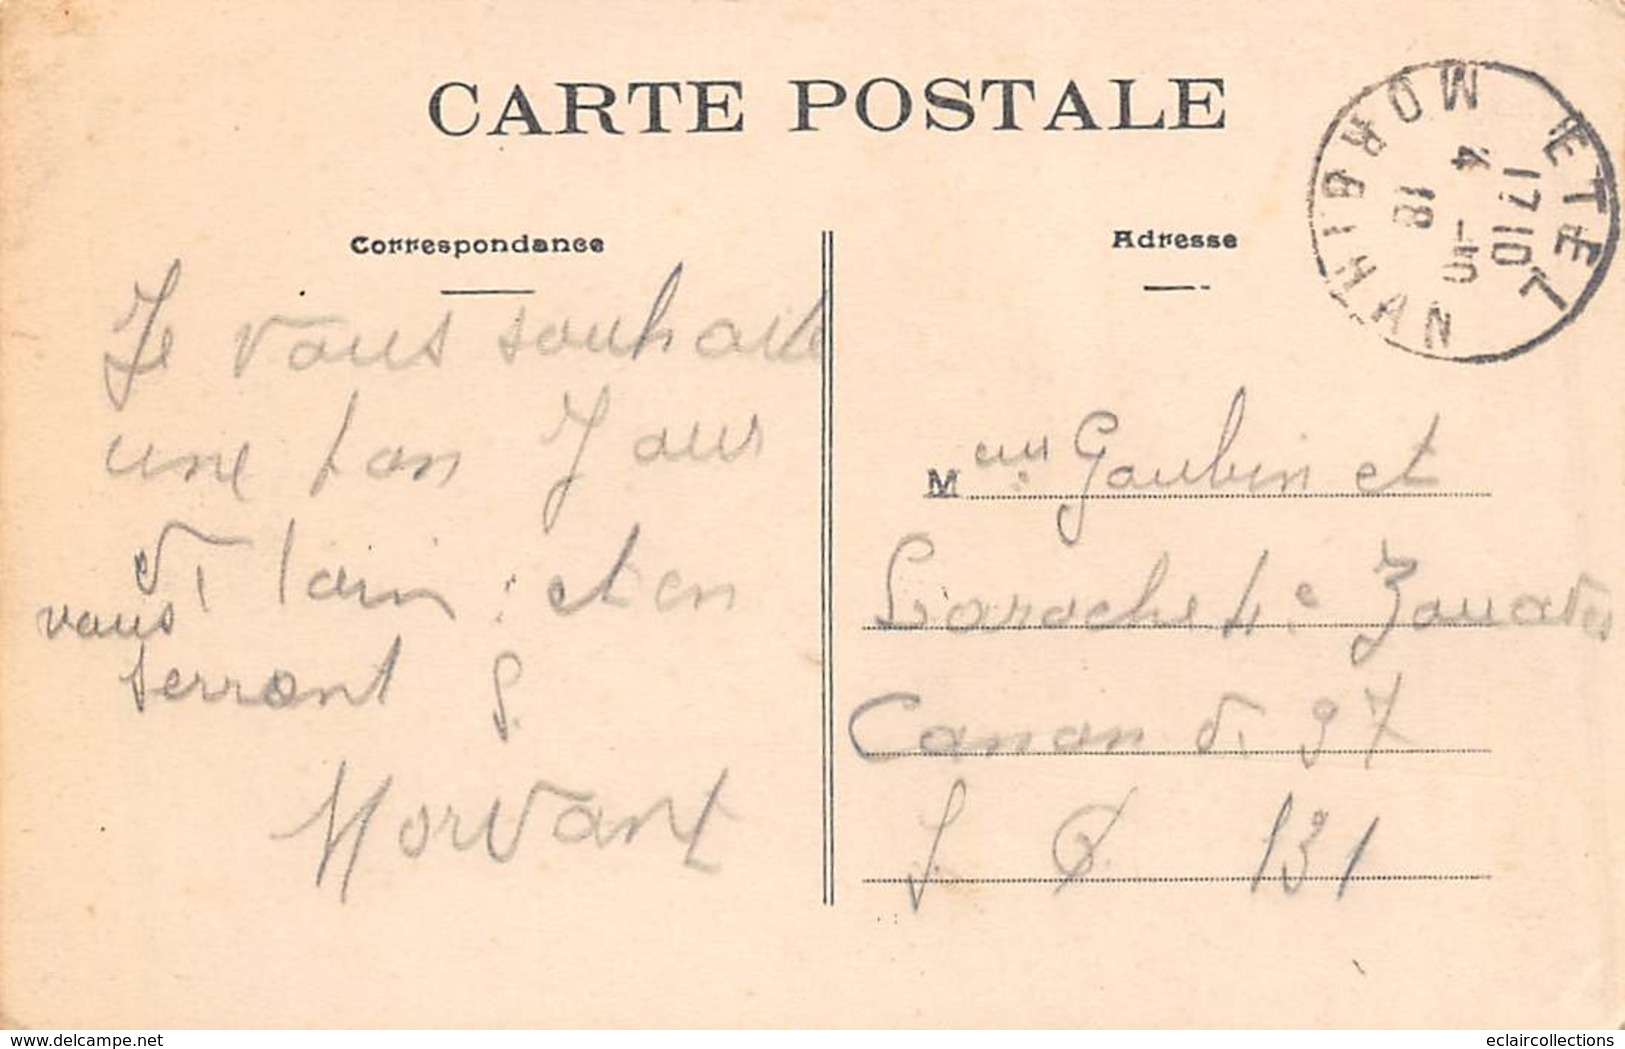 CARTE POSTALE
ETEL
MORBIHAN
17 10
4 - 5
18
Correspondance
Je vous souhaite
une bon Jour
de loin : et en
vous
serrant
S.
Morvant
Adresse
M Gaubin et
Laroche 4e Zouaves
Canon de 37
S. P. 131
delcampe.net
eclaircollections